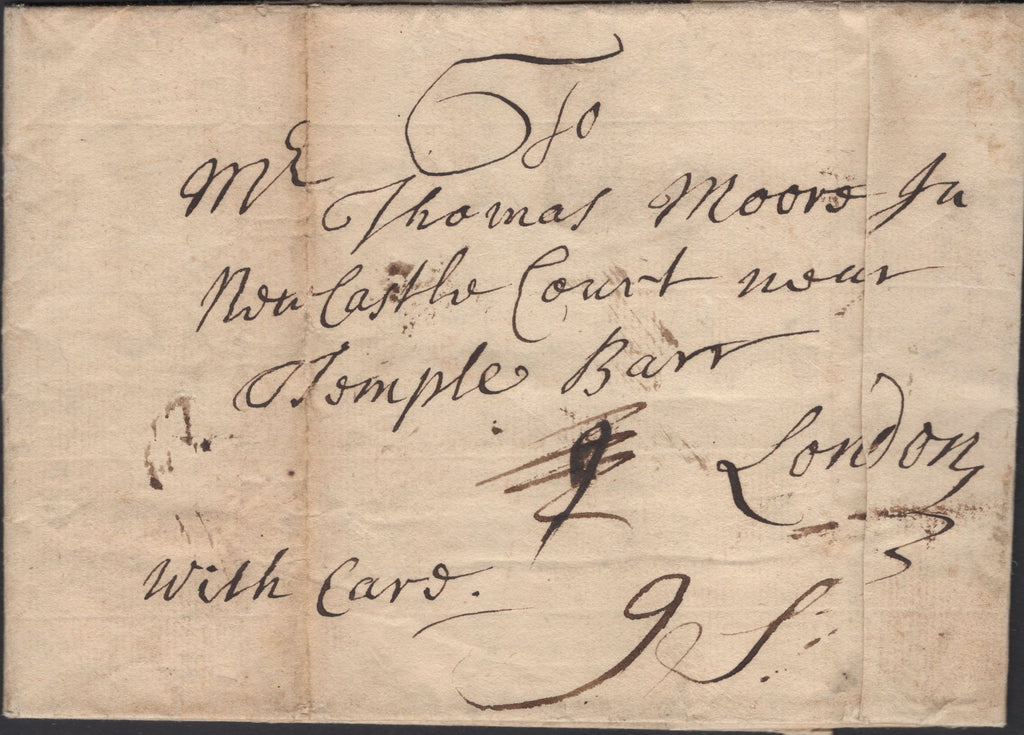 To
Mr
Thomas Moore In
New Castle Court near
Temple Barr
London
With Care.
9 S